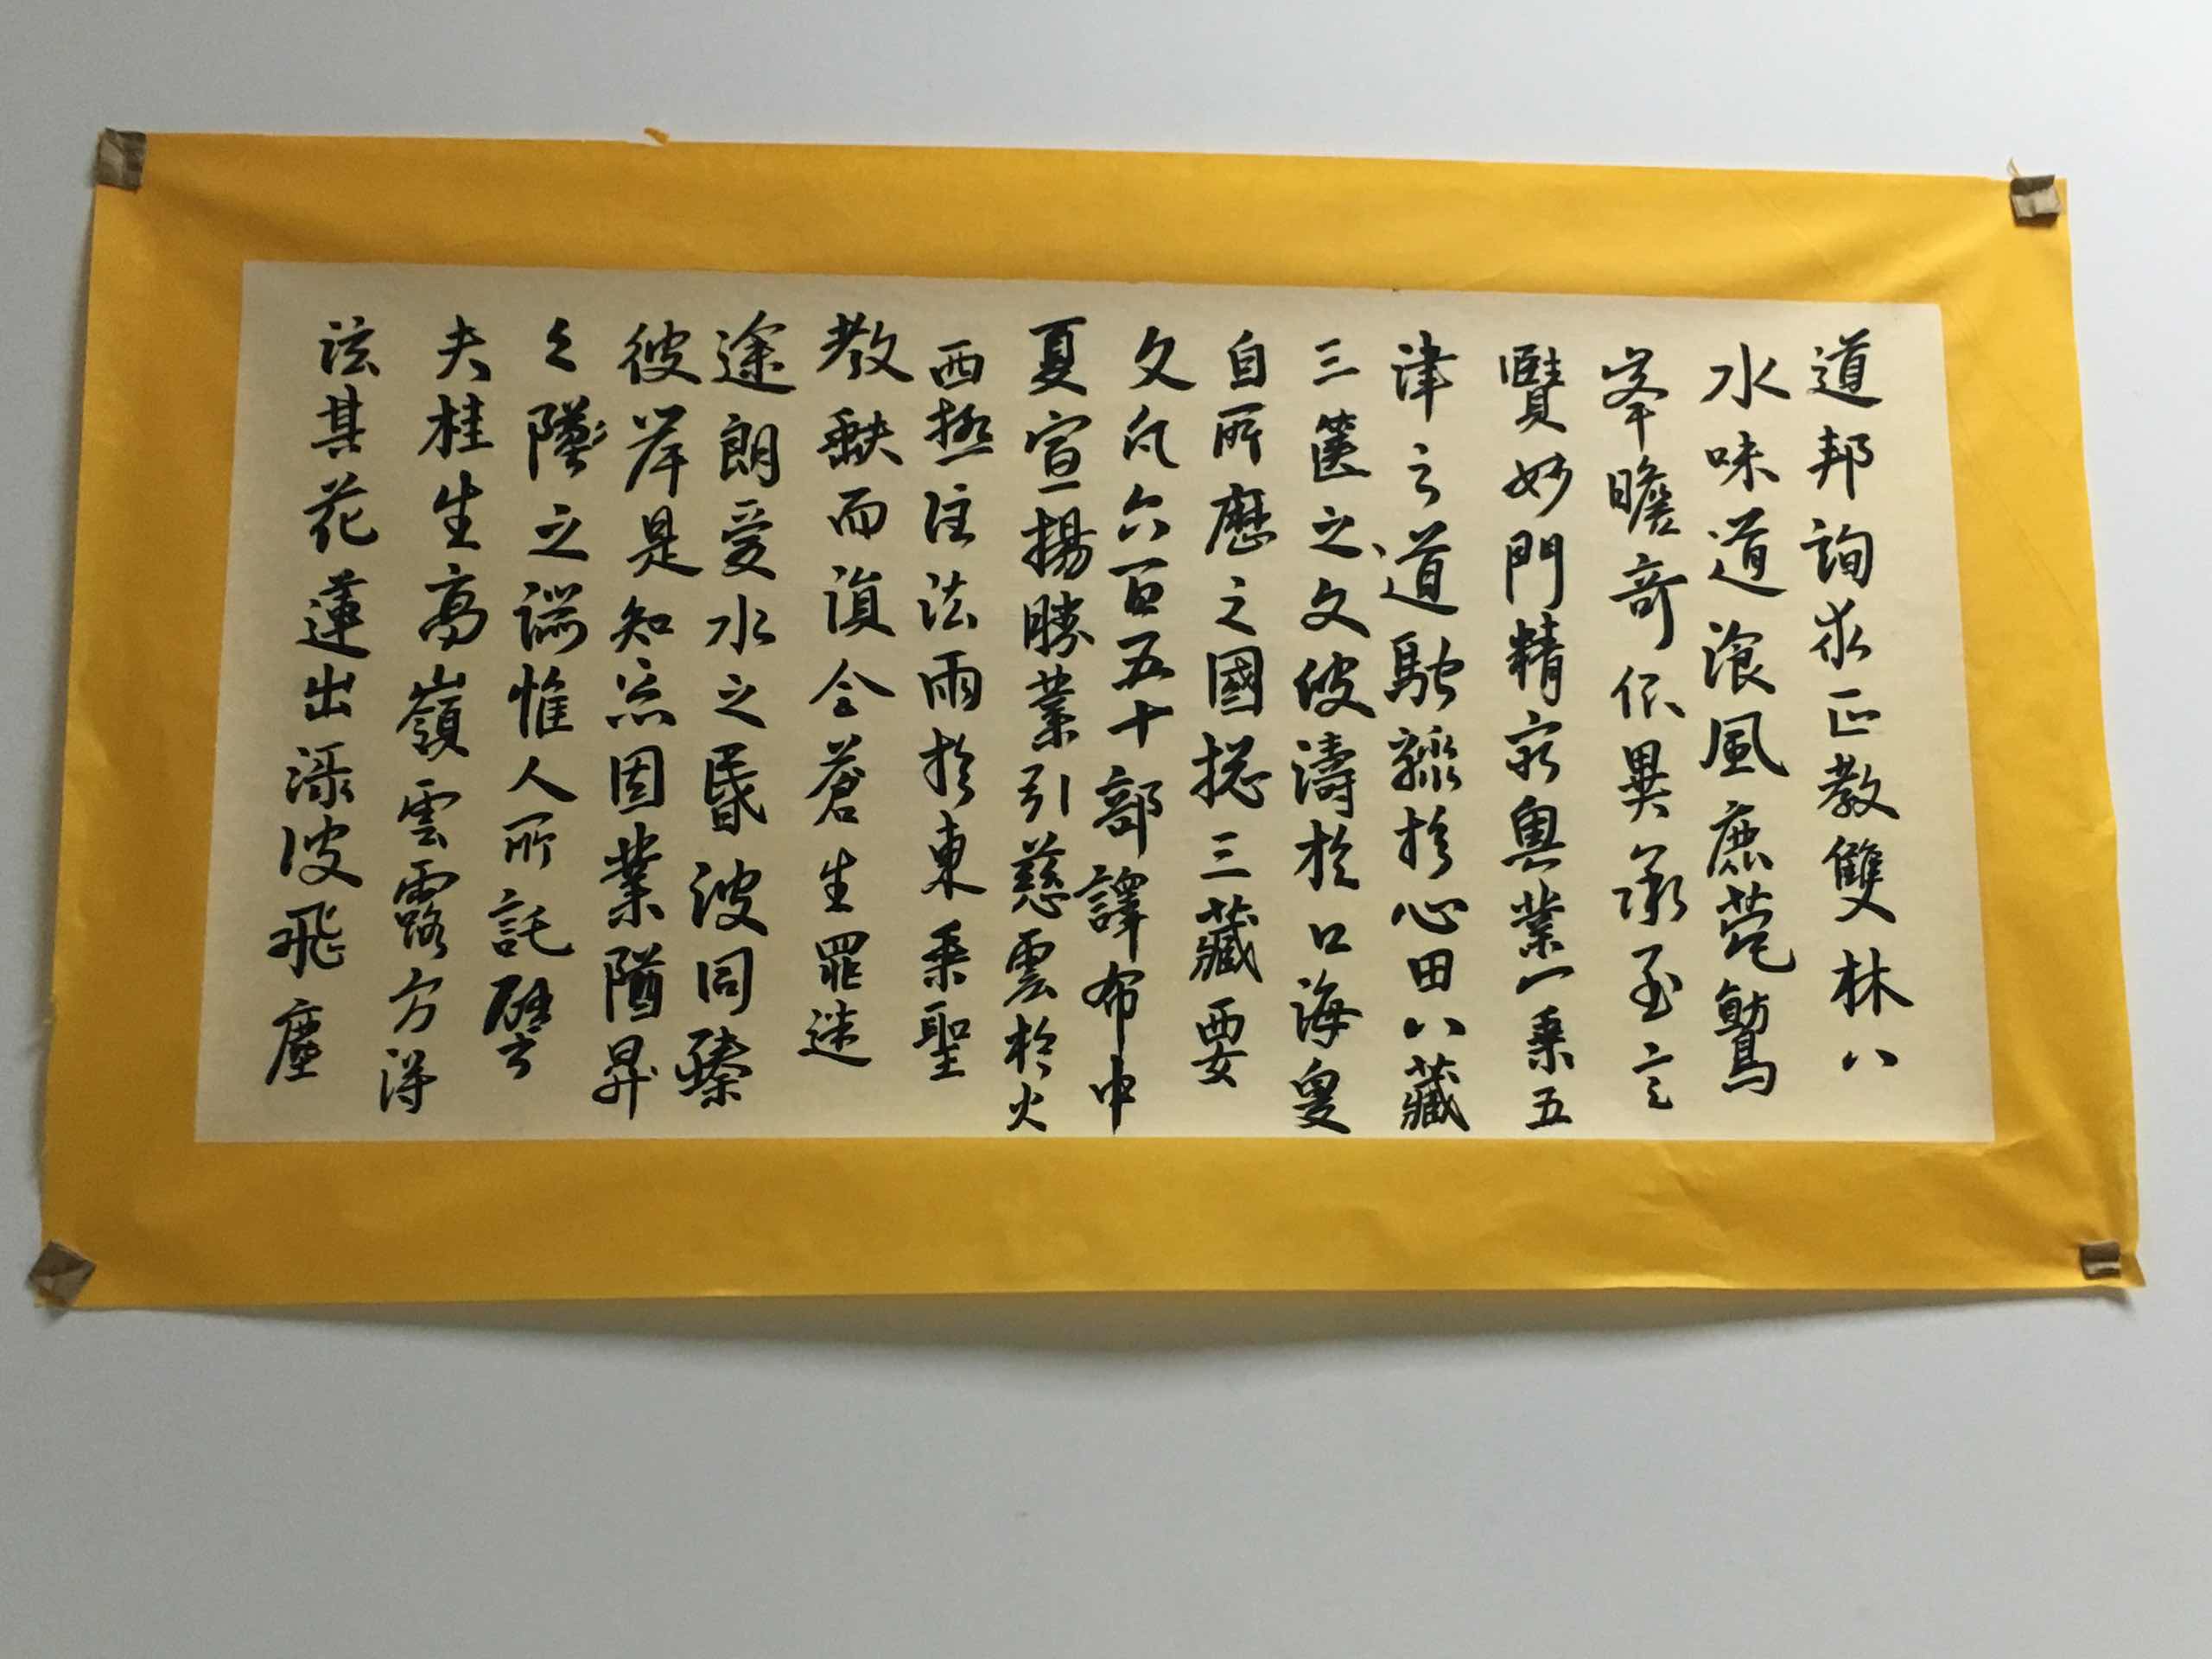 道邦詢求正教雙林八
水味道飡風鹿菀鷲
峯瞻奇仰異承至言
賢妙門精窮奧業一乘五
津之道馳驟於心田八藏
三篋之文波濤於口海爰
自所歷之國揔三藏要
文凡六百五十部譯布中
夏宣揚勝業引慈雲於
西極注法雨於東垂聖
教缺而復全蒼生罪
途朗愛水之昏波同臻
彼岸是知惡因業墜昇
之墜之端惟人所託譬
夫桂生高嶺雲露方得
泫其花蓮出淥波飛塵